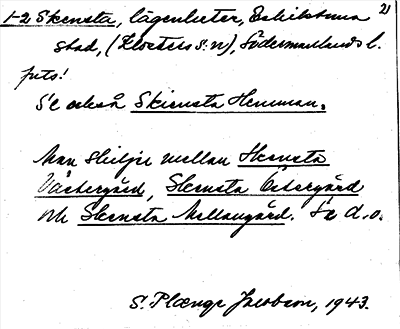 1-2 Skensta, lägenheter, Eskilstuna 2)
stad, (Klosters s:n), Södermanlands l.
puts!
Se också Skensta Hemman.
Man skiljer mellan Skensta
Västergård, Skensta Östergård
och Skensta Mellangård. Se d.o.
S. Plænge Jacobson, 1943.